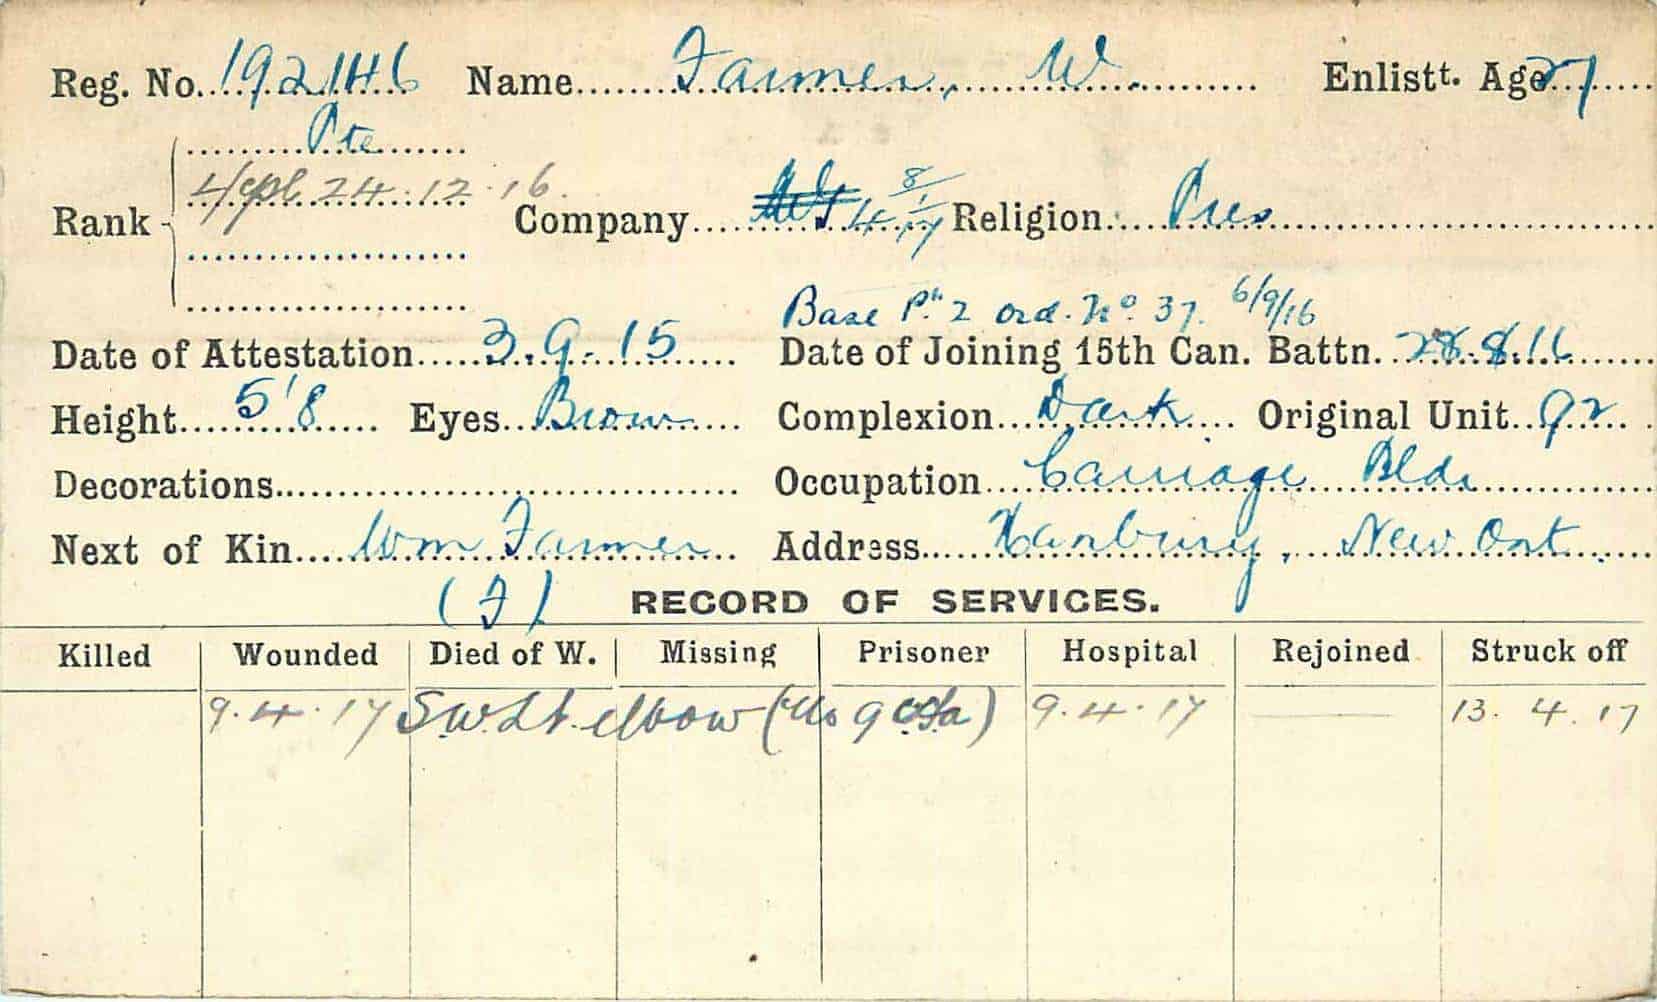 Reg. No. 192146 Name Farmer, W. Enlistt. Age 27
Pte
L/Cpl 24.12.16.
Rank Company 4 8/1/17 Religion Pres
Base Pt. 2 Ord. No. 37. 6/9/16
Date of Attestation 3.9.15 Date of Joining 15th Can. Battn. 28.8.16
Height 5'8 Eyes Brown Complexion Dark Original Unit 92
Decorations Occupation Carriage Bldr
Next of Kin Wm Farmer Address Hanbury, New Ont.
(F) RECORD OF SERVICES.
Killed Wounded Died of W. Missing Prisoner Hospital Rejoined Struck off
9.4.17 S.W. Lt. elbow ( 9 ) 9.4.17 — 13.4.17